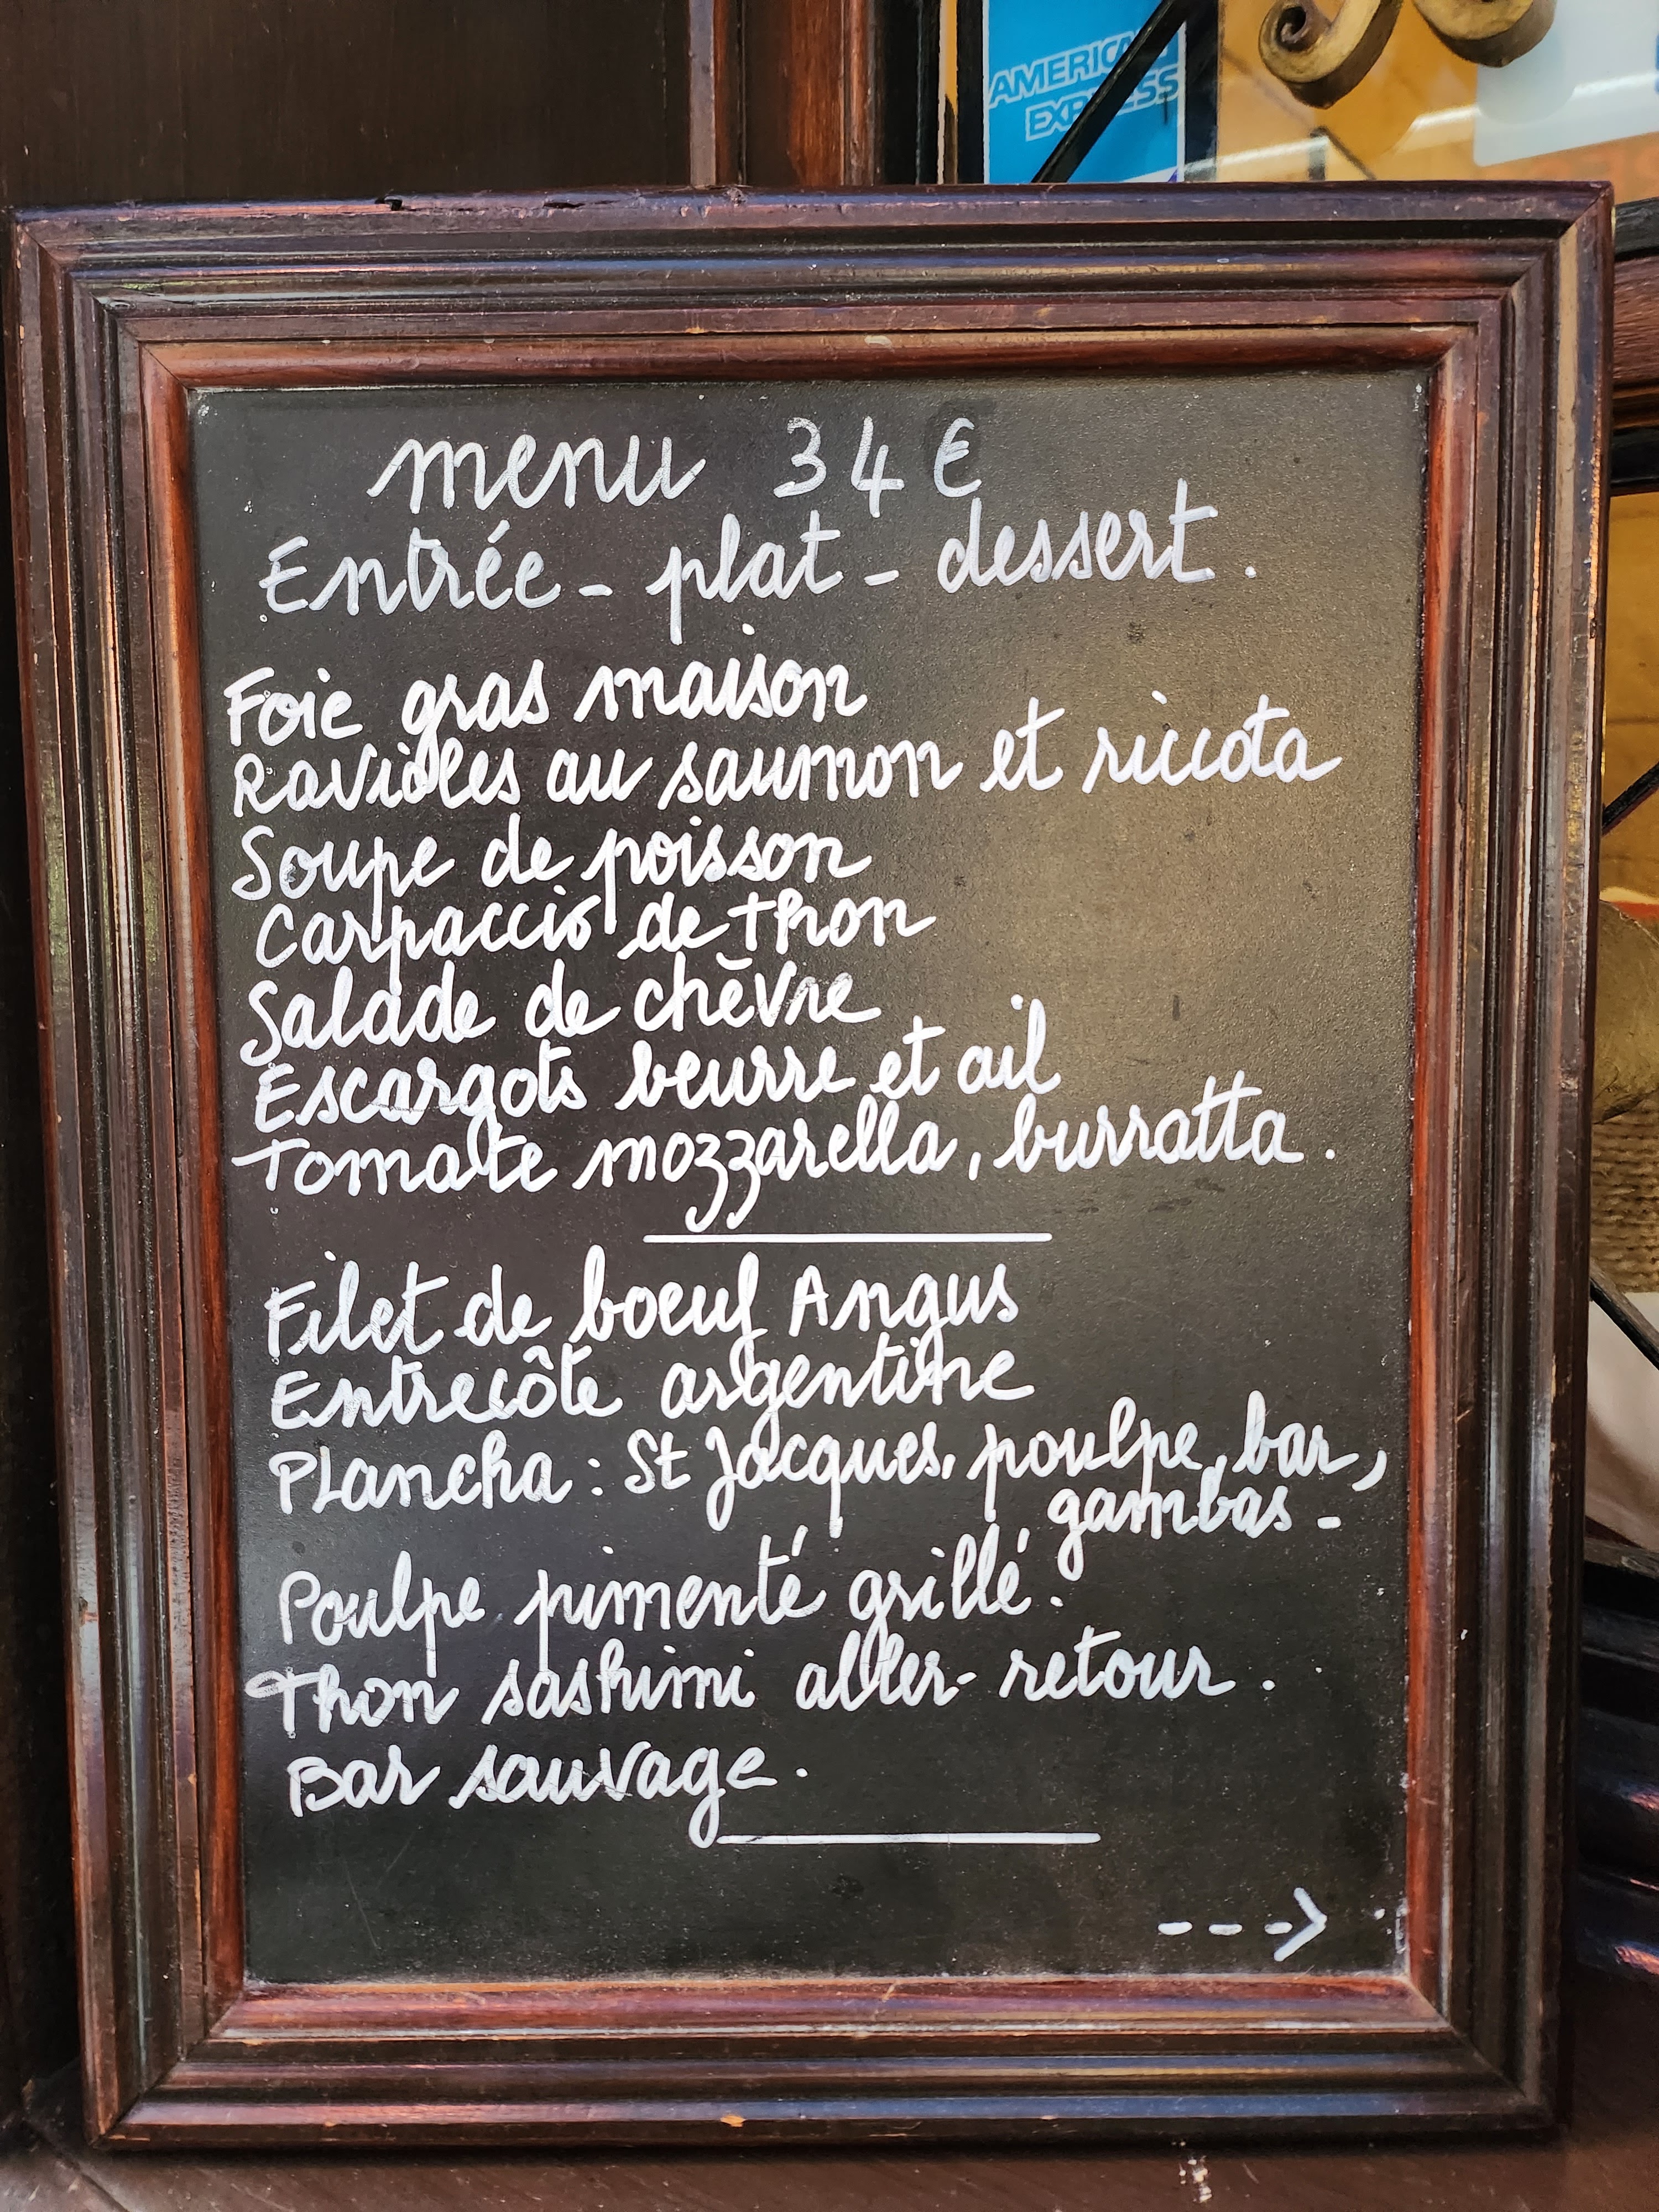 AMERICAN
EXPRESS
menu 34€
Entrée - plat - dessert.
Foie gras maison
Ravioles au saumon et riccota
Soupe de poisson
Carpaccio de thon
Salade de chèvre
Escargots beurre et ail
Tomate mozzarella, burratta.
Filet de boeuf Angus
Entrecôte argentine
Plancha : St Jacques, poulpe, bar,
gambas -
Poulpe pimenté grillé.
Thon sashimi aller-retour.
Bar sauvage.